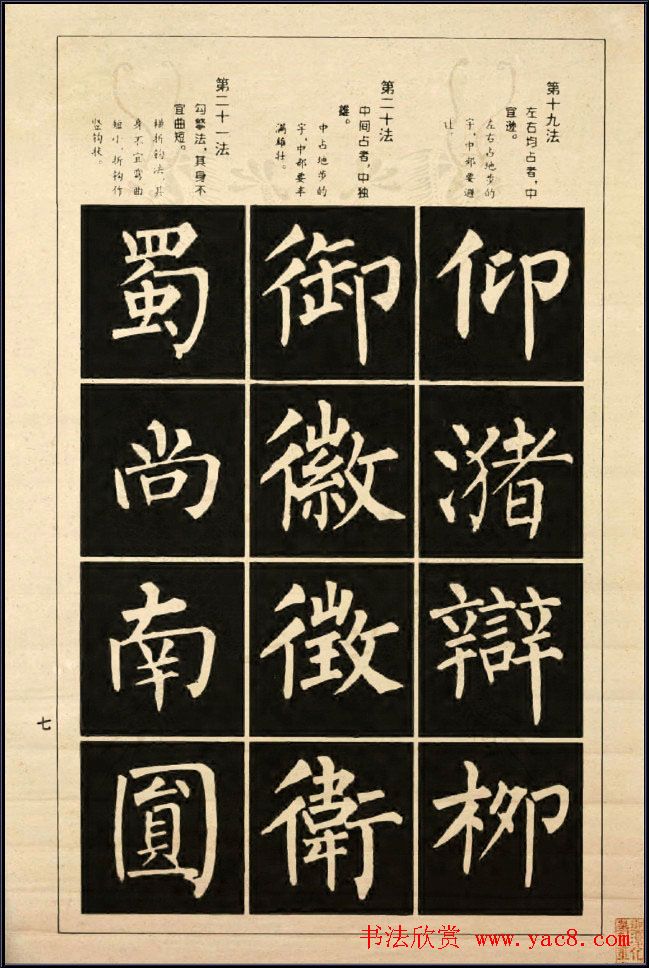 第十九法
左右均占者，中
宜逊。
左右占地步的
字，中部要避
让
仰潴辯柳
第二十法
中间占者，中独
雄。
中占地步的
字，中部要丰
满雄壮。
御徽徵衛
第二十一法
勾拏法，其身不
宜曲短。
横折钩法，其
身不宜弯曲
短小，折钩作
竖钩状。
蜀尚南圓
七
书法欣赏 www.yac8.com